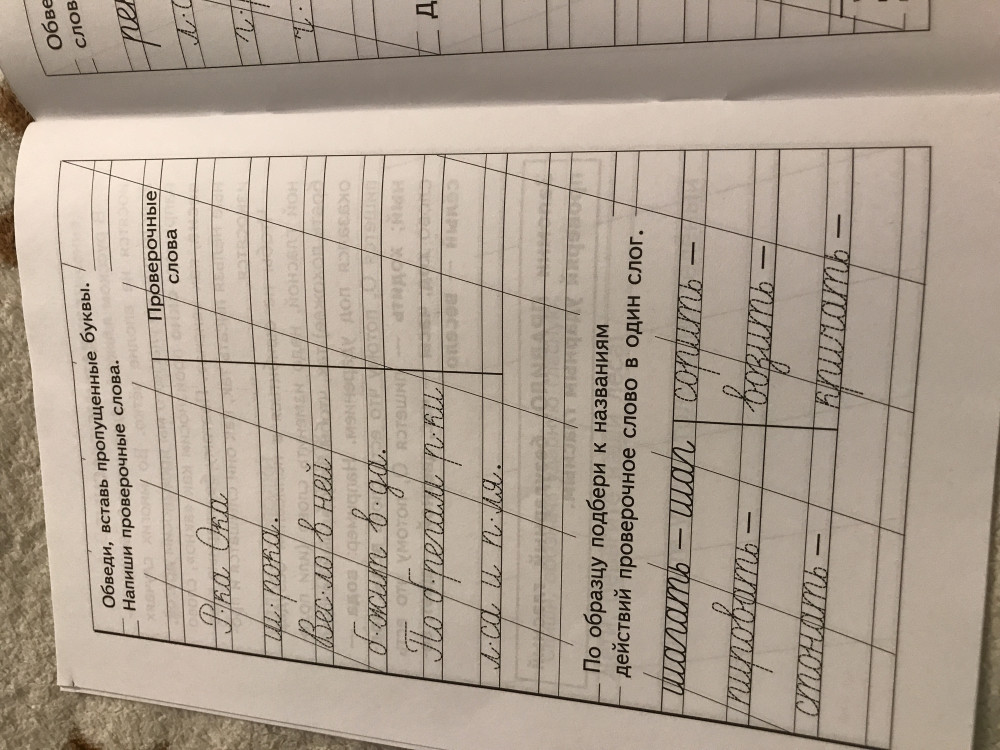 Обве
слов
рек
Д
Обведи, вставь пропущенные буквы.
Напиши проверочные слова.
Проверочные
слова
Р·ка Ока
ш·рока.
Вес·ло в ней
б·жит в·да.
По б·регам п·ки
л·са и п·ля.
По образцу подбери к названиям
действий проверочное слово в один слог.
шагать – шаг сорить –
пировать – возить –
стонать – кричать –